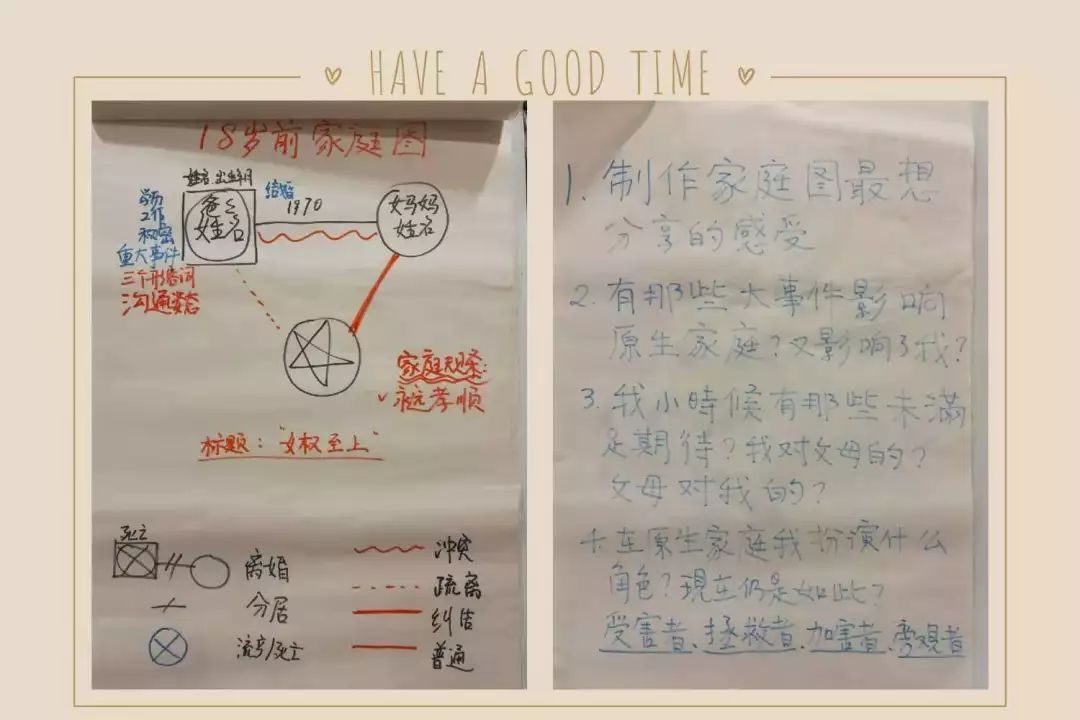 HAVE A GOOD TIME
18岁前家庭图
姓名.出生年月
学历
工作
秘密
重大事件
三个形容词
沟通姿态
爸爸
姓名
结婚
1970
妈妈
姓名
家庭天条:
永远孝顺
标题:"女权至上"
死亡
离婚
分居
流产/死亡
冲突
疏离
纠结
普通
1. 制作家庭图最想
分享的感受
2. 有那些大事件影响
原生家庭?又影响了我?
3. 我小時候有那些未滿
足期待?我对父母的?
父母对我的?
4. 在原生家庭我扮演什么
角色?現在仍是如此?
受害者、拯救者、加害者、旁观者